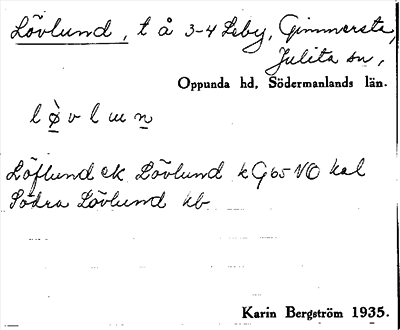 Lövlund, t å 3-4 Leby, Gimmersta,
Julita sn,
Oppunda hd, Södermanlands län.
l ø̀ v l ɯ n
Löflund ek Lövlund kG 65 NO kal
Södra Lövlund kb
Karin Bergström 1935.